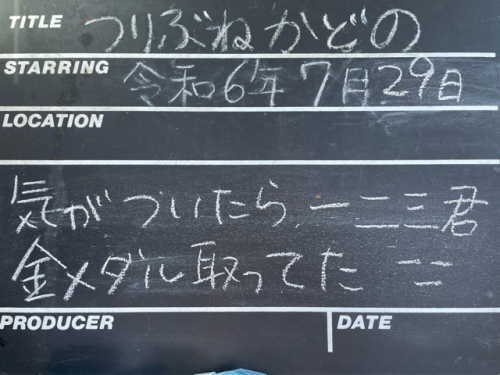 TITLE つりぶねかどの
STARRING 令和6年7月29日
LOCATION
気がついたら、一二三君
金メダル取ってた ニニ
PRODUCER DATE